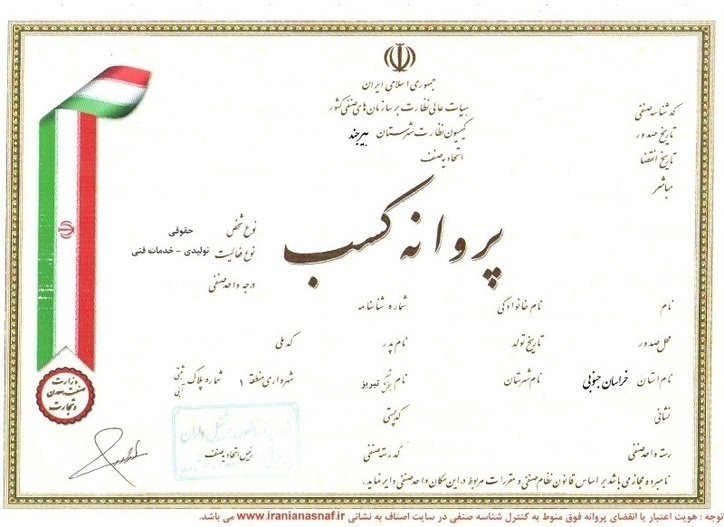 جمهوری اسلامی ایران
هیات عالی نظارت بر سازمان‌های صنفی کشور
کمیسیون نظارت شهرستان بیرجند
اتحادیه صنف
کد شناسه صنفی
تاریخ صدور
تاریخ انقضا
مباشر
پروانه کسب
نوع شخص حقوقی
نوع فعالیت تولیدی - خدمات فنی
درجه واحد صنفی
نام نام خانوادگی شماره شناسنامه
محل صدور تاریخ تولد نام پدر کد ملی
نام استان خراسان جنوبی نام شهرستان نام بخش/شهر تبریز شهرداری منطقه ۱ شماره پلاک ثبتی/آبی
نشانی کد پستی
رسته واحد صنفی کد رسته صنفی رئیس اتحادیه صنف
نامبرده مجاز می باشد بر اساس قانون نظام صنفی و مقررات مربوط در این مکان واحد صنفی دایر نماید.
وزارت
صنعت، معدن
و تجارت
توجه : هویت اعتبار یا انقضای پروانه فوق منوط به کنترل شناسه صنفی در سایت اصناف به نشانی www.iranianasnaf.ir می باشد.